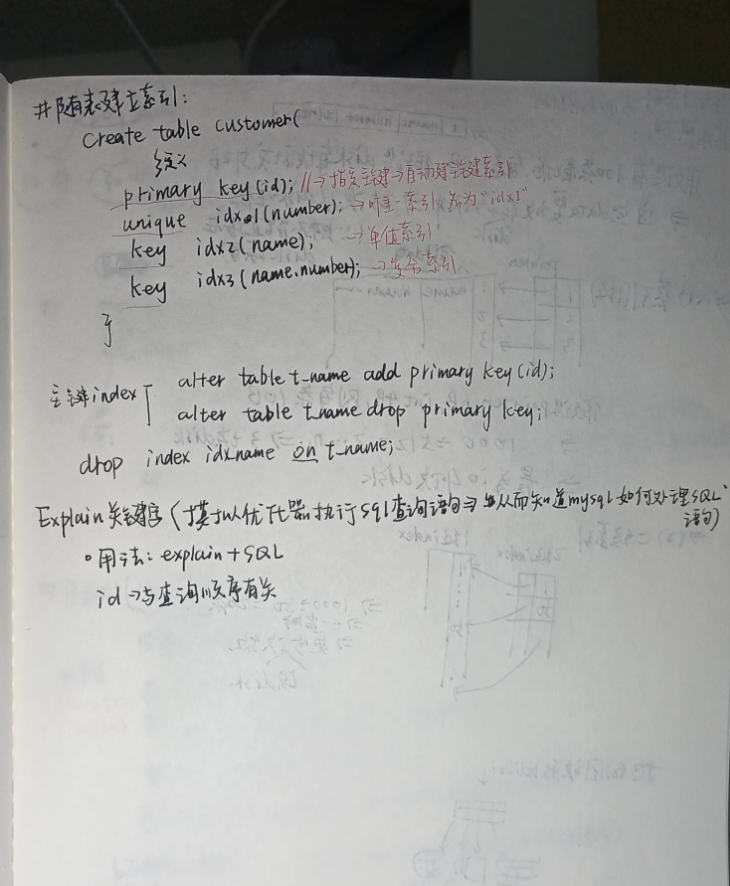 #随表建立索引:
create table customer(
定义
primary key(id); //→指定主键→自动建主键索引
unique idx1(number); →唯一索引 名为"idx1"
key idx2(name); →单值索引
key idx3(name.number); →复合索引
}
主键index [ alter table t_name add primary key(id);
alter table t_name drop primary key;
drop index idxname on t_name;
Explain关键字(模拟优化器执行sql查询语句 从而知道mysql如何处理SQL
语句)
•用法: explain+SQL
id→与查询顺序有关